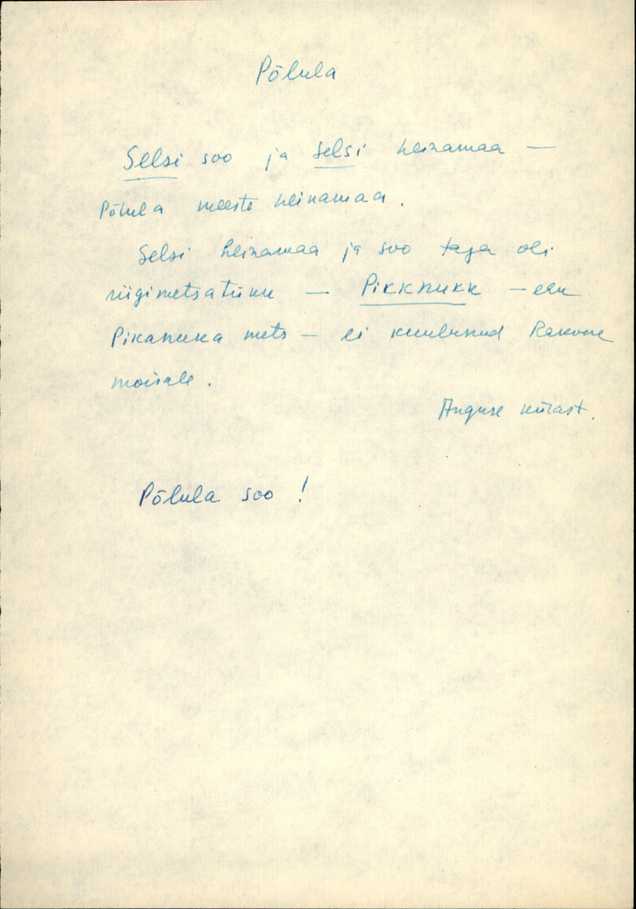 Põlula
Selsi soo ja Selsi heinamaa —
Põlula meeste heinamaa.
Selsi heinamaa ja soo taga oli
riigimetsatükk — Pikknukk — ehk
Pikanuka mets — ei kuulunud Rakvere
moisale.
Anguse külast.
Põlula soo!